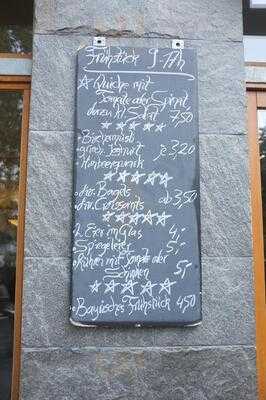 Frühstück 9-17h
Quiche mit
Tomate oder Spinat
dazu kl. Salat 7,50
• Birchermüsli
griech. Joghurt je 3,20
• Himbeerquark
• div. Bagels ab 3,50
• div. Croissants
2 Eier im Glas 4,-
Spiegeleier 5,-
• Rührei mit Tomate oder
Schinken 5,-
• Bayrisches Frühstück 4,50